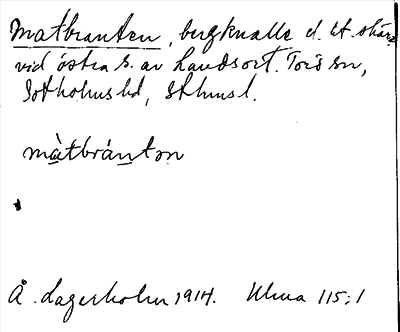 Matbranten, bergknalle el. lit. skär
vid östra s. av Landsort. Torö sn,
Sotholms hd, Sthms l.
màtbrántən
Å. Lagerholm 1914. Ulma 115:1